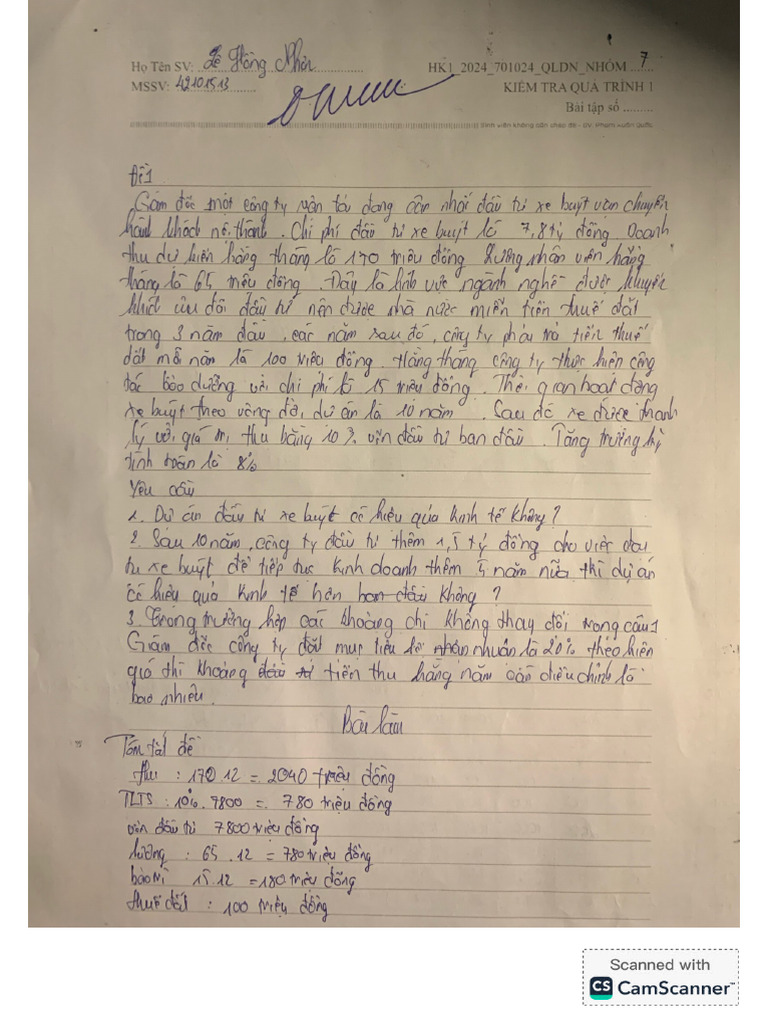 Họ Tên SV: Lê Hồng Nhân
HK1_2024_701024_QLDN_NHÓM 7
MSSV: 42101513
KIỂM TRA QUÁ TRÌNH 1
Bài tập số
Đề 1
Giám đốc một công ty vận tải đang cân nhắc đầu tư xe buýt vận chuyển
hành khách nội thành. Chi phí đầu tư xe buýt là 7,8 tỷ đồng Doanh
thu dự kiến hàng tháng là 170 triệu đồng Lương nhân viên hằng
tháng là 65 triệu đồng. Đây là lĩnh vực ngành nghề được khuyến
khích ưu đãi đầu tư nên được nhà nước miễn tiền thuế đất
trong 3 năm đầu, các năm sau đó, công ty phải trả tiền thuế
đất mỗi năm là 100 triệu đồng. Hằng tháng công ty thực hiện công
tác bảo dưỡng với chi phí là 15 triệu đồng. Thời gian hoạt động
xe buýt theo vòng đời dự án là 10 năm. Sau đó xe được thanh
lý với giá trị thu bằng 10% vốn đầu tư ban đầu. Tăng trưởng kỳ
tính toán là 8%
Yêu cầu
1. Dự án đầu tư xe buýt có hiệu quả kinh tế không?
2. Sau 10 năm, công ty đầu tư thêm 1,5 tỷ đồng cho việc đại
tu xe buýt để tiếp tục kinh doanh thêm 5 năm nữa thì dự án
có hiệu quả kinh tế hơn ban đầu không?
3. Trong trường hợp các khoảng chi không thay đổi trong câu 1
Giám đốc công ty đặt mục tiêu lợi nhuận là 20% theo hiện
giá thì khoảng tiền thu hằng năm cần điều chỉnh là
bao nhiêu.
Bài làm
Tóm tắt đề
thu : 170.12 = 2040 triệu đồng
TLTS : 10%.7800 = 780 triệu đồng
vốn đầu tư 7800 triệu đồng
lương : 65.12 = 780 triệu đồng
bảo trì 15.12 = 180 triệu đồng
thuế đất : 100 triệu đồng
Scanned with
CS CamScanner